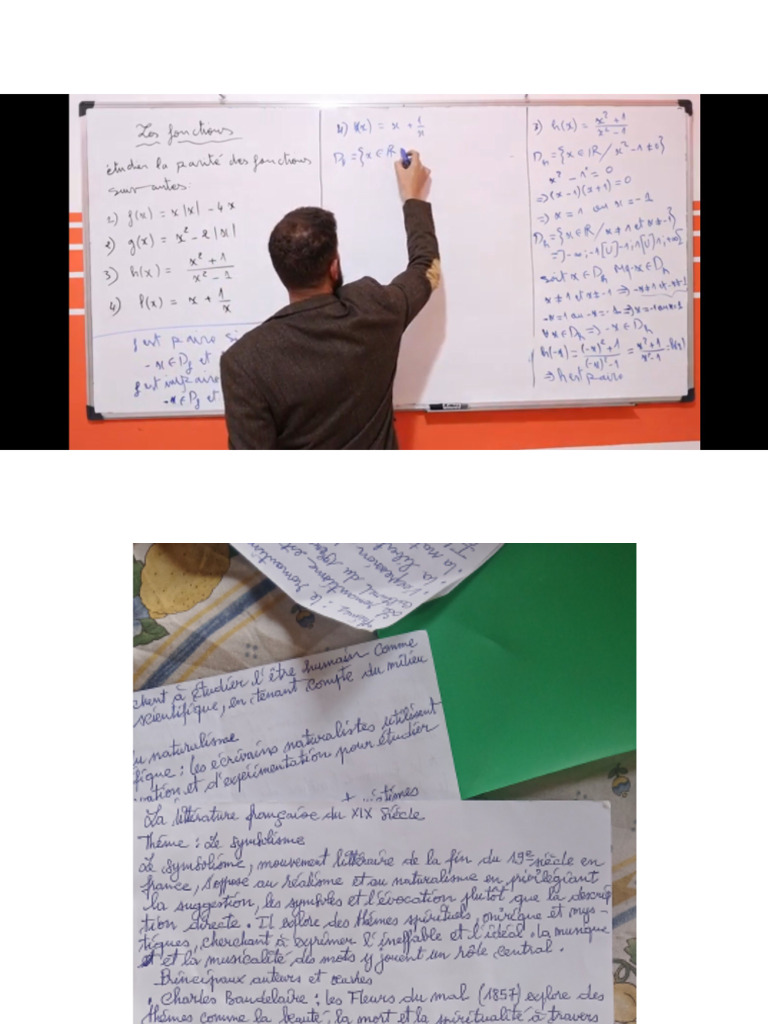 Les fonctions
étudier la parité des fonctions
suivantes:
1) f(x) = x|x| - 4x
2) g(x) = x² - 2|x|
3) h(x) = x² + 1 / x² - 1
4) f(x) = x + 1/x
f est paire si
- x ∈ Df et
f est impaire
-x ∈ Df et
4) f(x) = x + 1/x
Df = {x ∈ ℝ
3) h(x) = x² + 1 / x² - 1
Dh = {x ∈ ℝ / x² - 1 ≠ 0}
x² - 1 = 0
=> (x - 1)(x + 1) = 0
=> x = 1 ou x = -1
Dh = {x ∈ ℝ / x ≠ 1 et x ≠ -1}
= ]-∞; -1[ U ]-1; 1[ U ]1; +∞[
soit x ∈ Dh Mq -x ∈ Dh
x ≠ 1 et x ≠ -1 => -x ≠ 1 et -x ≠ -1
∀x ∈ Dh => -x ∈ Dh
h(-x) = (-x)² + 1 / (-x)² - 1 = x² + 1 / x² - 1 = h(x)
=> h est paire
Thème : le romantisme
Le romantisme est
culturel du
l'expression
la libert
chent à étudier l'être humain comme
scientifique, en tenant compte du milieu
u naturalisme
fique : les écrivains naturalistes utilisent
vation et d'expérimentation pour étudier
La littérature française du XIX Siècle
Thème : Le symbolisme
Le symbolisme, mouvement littéraire de la fin du 19e siècle en
france, s'oppose au réalisme et au naturalisme en privilégiant
la suggestion, les symboles et l'évocation plutôt que la descrip
tion directe. Il explore des thèmes spirituels, onirique et mys-
tiques, cherchant à exprimer l'ineffable et l'idéal. La musique
et et la musicalité des mots y jouent un rôle central.
Principaux auteurs et œuvres
. Charles Baudelaire : les Fleurs du mal (1857) explore des
thèmes comme la beauté, la mort et la spiritualité à travers